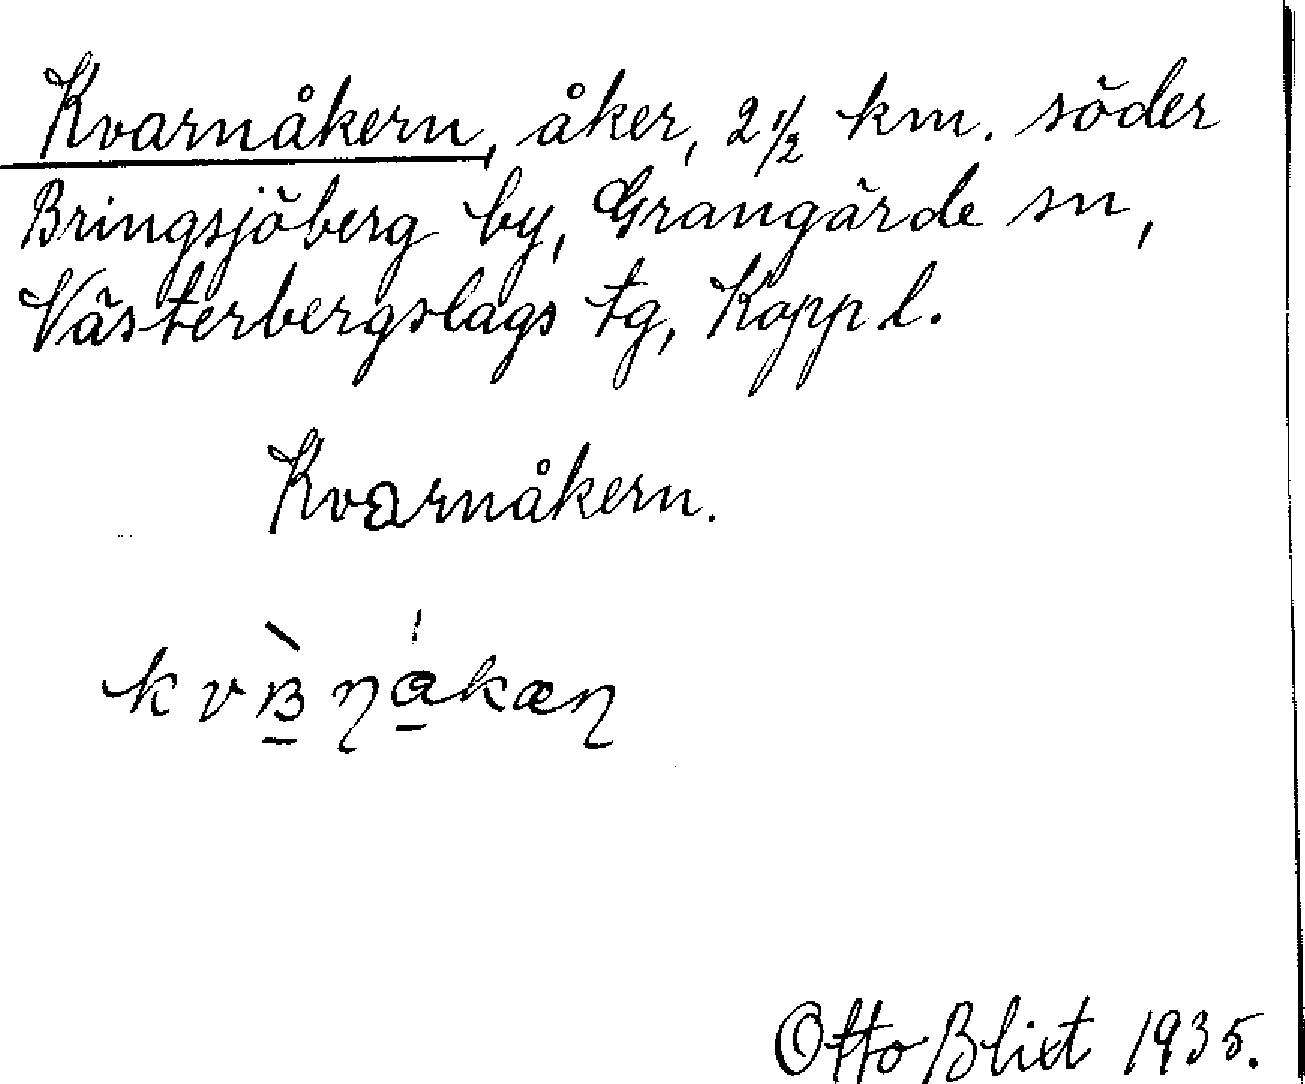 Kvarnåkern, åker, 2 1/2 km. söder
Bringsjöberg by, Grangärde sn,
Västerbergslags tg, Koppl.
Kvarnåkern.
Otto Blixt 1935.